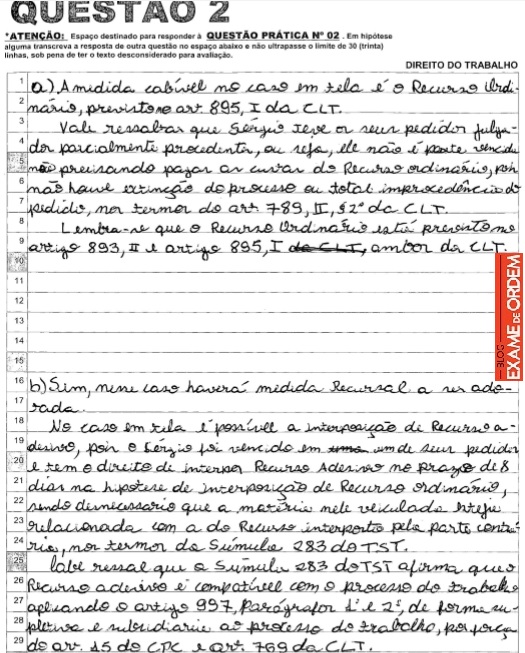 QUESTÃO 2
*ATENÇÃO: Espaço destinado para responder à QUESTÃO PRÁTICA Nº 02. Em hipótese
alguma transcreva a resposta de outra questão no espaço abaixo e não ultrapasse o limite de 30 (trinta)
linhas, sob pena de ter o texto desconsiderado para avaliação.
DIREITO DO TRABALHO
1 a) A medida cabível no caso em tela é o Recurso Ordi-
2 nário, previsto no art. 895, I da CLT.
3 Vale ressaltar que Sérgio teve os seus pedidos julga-
4 dos parcialmente procedentes, ou seja, ele não é parte vencida
5 não precisando pagar as custas do Recurso ordinário, pois
6 não houve extinção do processo ou total improcedência do
7 pedido, nos termos do art. 789, II, § 2º da CLT.
8 Lembra-se que o Recurso Ordinário está previsto no
9 artigo 893, II e artigo 895, I da CLT, ambos da CLT.
10
11
12
13
14
15
16 b) Sim, nesse caso haverá medida Recursal a ser ado-
17 tada.
18 No caso em tela é possível a interposição de Recurso a-
19 desivo, pois o Sérgio foi vencido em uma um de seus pedidos
20 e tem o direito de interpor Recurso Adesivo no prazo de 8
21 dias na hipótese de interposição de Recurso ordinário,
22 sendo desnecessário que a matéria nele veiculada esteja
23 relacionada com a do Recurso interposto pela parte contrá-
24 ria, nos termos da Súmula 283 do TST.
25 Cabe ressal que a Súmula 283 do TST afirma que o
26 Recurso adesivo é compatível com o processo do trabalho
27 aplicando o artigo 997, Parágrafos 1º e 2º, de forma su-
28 pletiva e subsidiária ao processo do trabalho, por força
29 do art. 15 do CPC e art. 769 da CLT.
BLOG
EXAME DE ORDEM